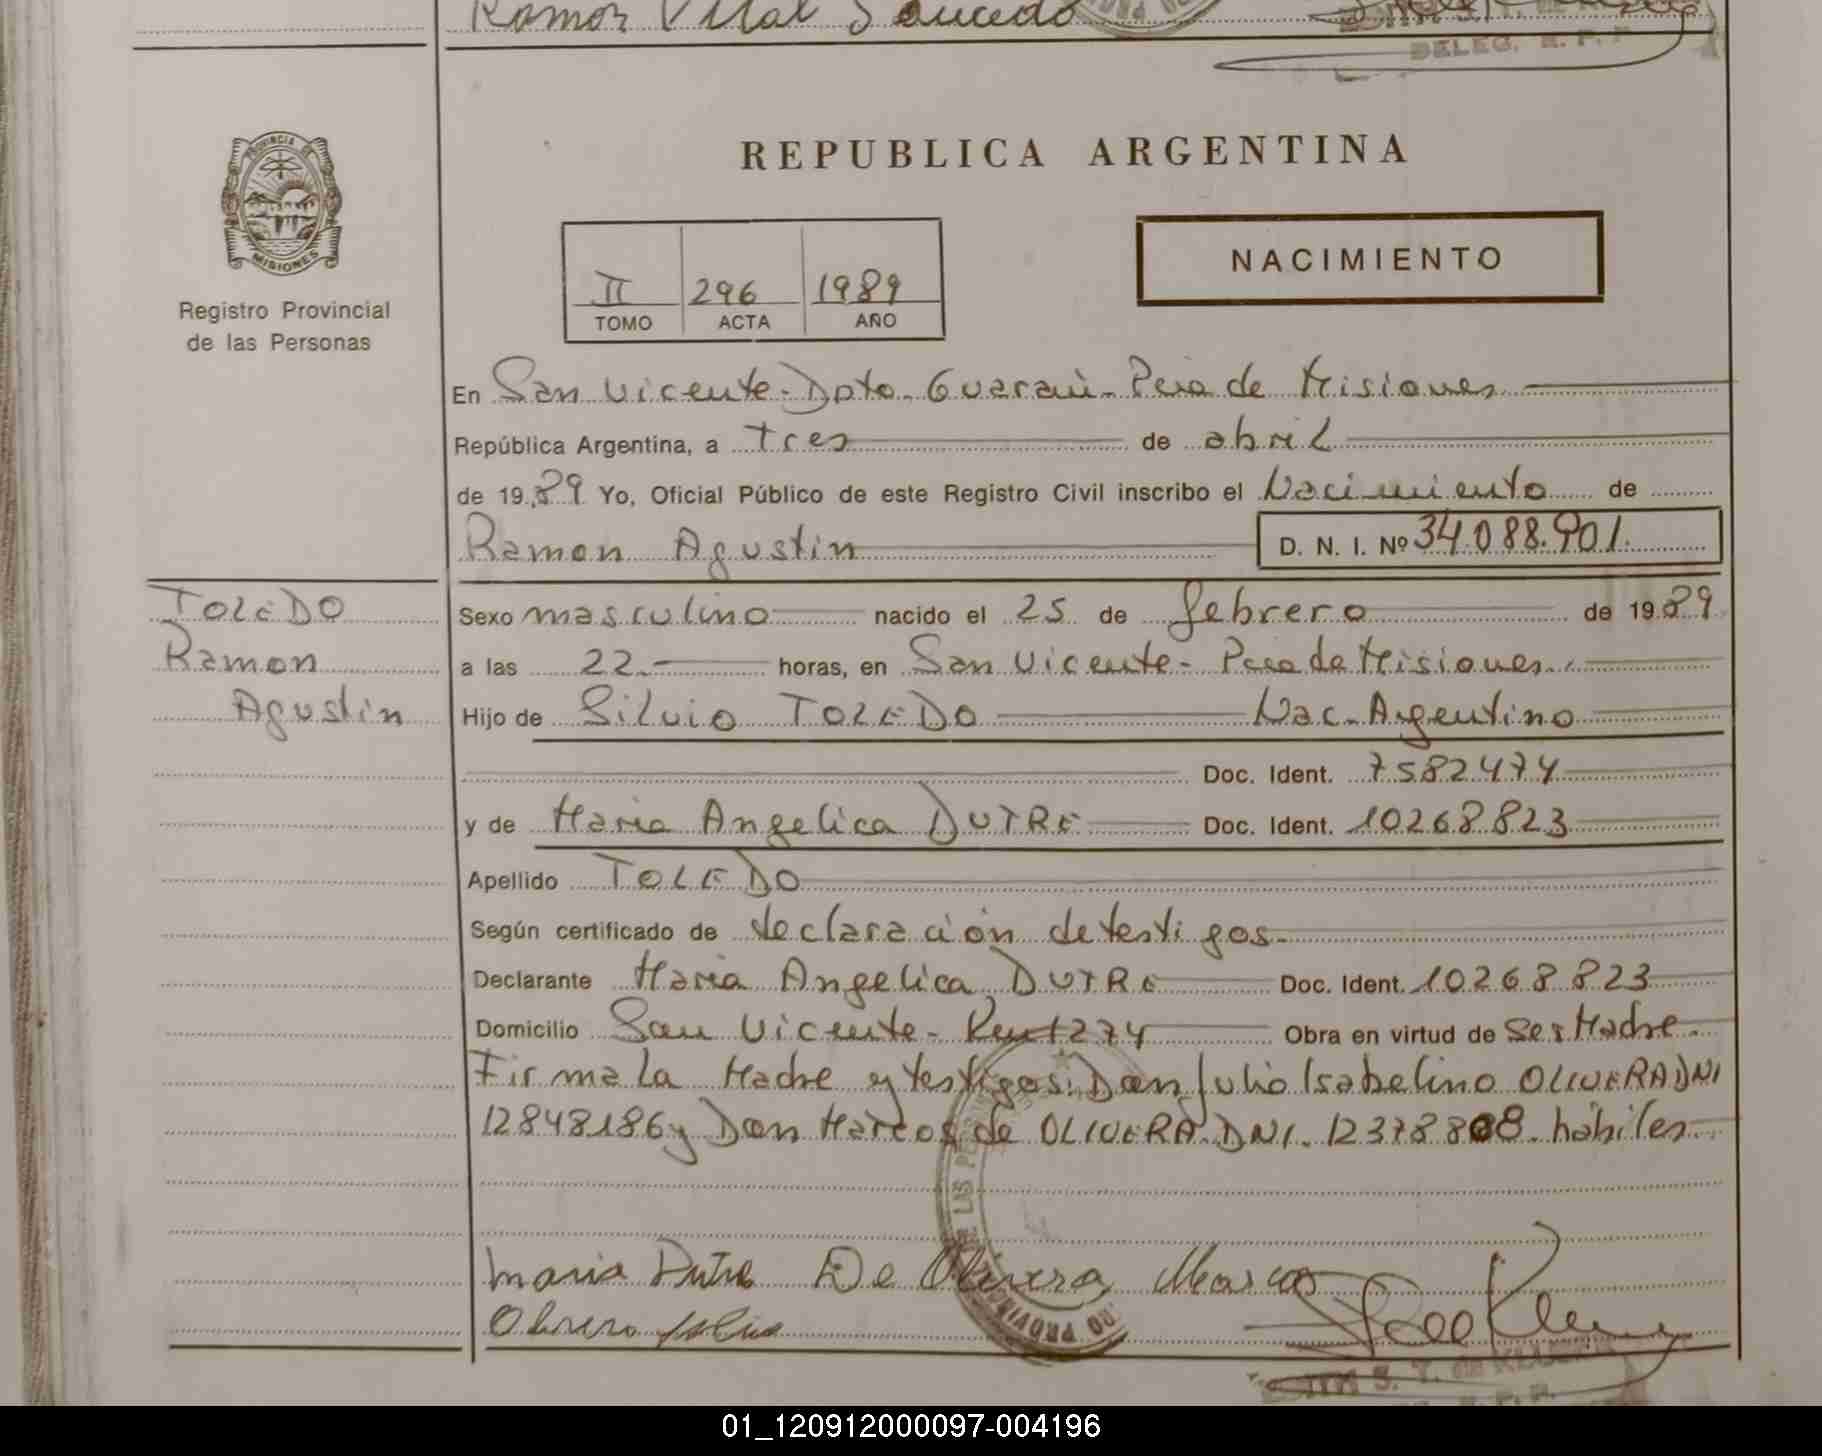 Ramon Vital Saucedo
DELEG. R. P. P.
PROVINCIA DE
MISIONES
Registro Provincial
de las Personas
REPUBLICA ARGENTINA
II 296 1989
TOMO ACTA AÑO
NACIMIENTO
En San Vicente - Dpto. Guarani - Pcia de Misiones
República Argentina, a tres de abril
de 1989 Yo, Oficial Público de este Registro Civil inscribo el Nacimiento de
Ramon Agustin D. N. I. Nº 34.088.901.
TOLEDO
Ramon
Agustin
Sexo masculino nacido el 25 de febrero de 1989
a las 22.- horas, en San Vicente - Pcia de Misiones.
Hijo de Silvio TOLEDO Nac. Argentino
Doc. Ident. 7582474
y de Maria Angelica DUTRE Doc. Ident. 10268823
Apellido TOLEDO
Según certificado de declaración de testigos.
Declarante Maria Angelica DUTRE Doc. Ident. 10268823
Domicilio San Vicente - 1274 Obra en virtud de Ser Madre.
Firma la Madre y testigos: Don Julio Isabelino OLIVERA DNI
12848186 y Don Marcos de OLIVERA. DNI. 12378808. hábiles
Maria Dutre De Olivera Marcos
Olivera Julio
01_120912000097-004196